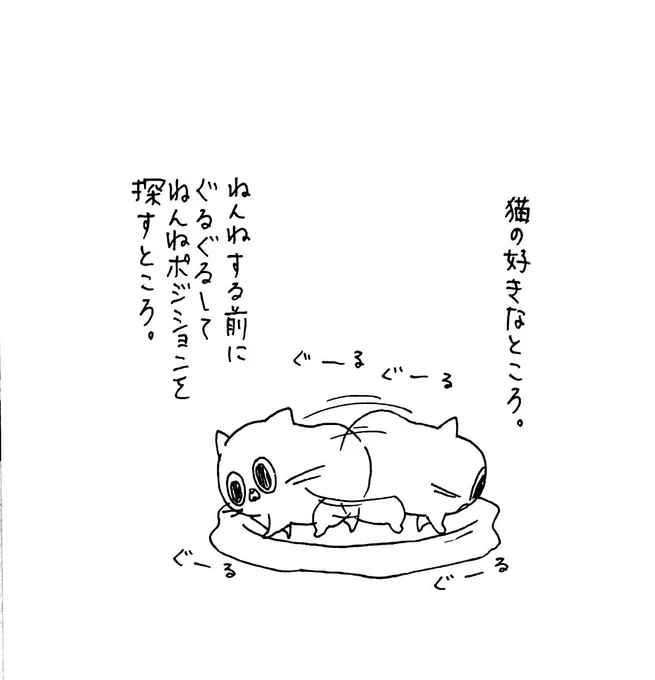 猫の好きなところ。
ねんねする前に
ぐるぐるして
ねんねポジションを
探すところ。
ぐーる
ぐーる
ぐーる
ぐーる